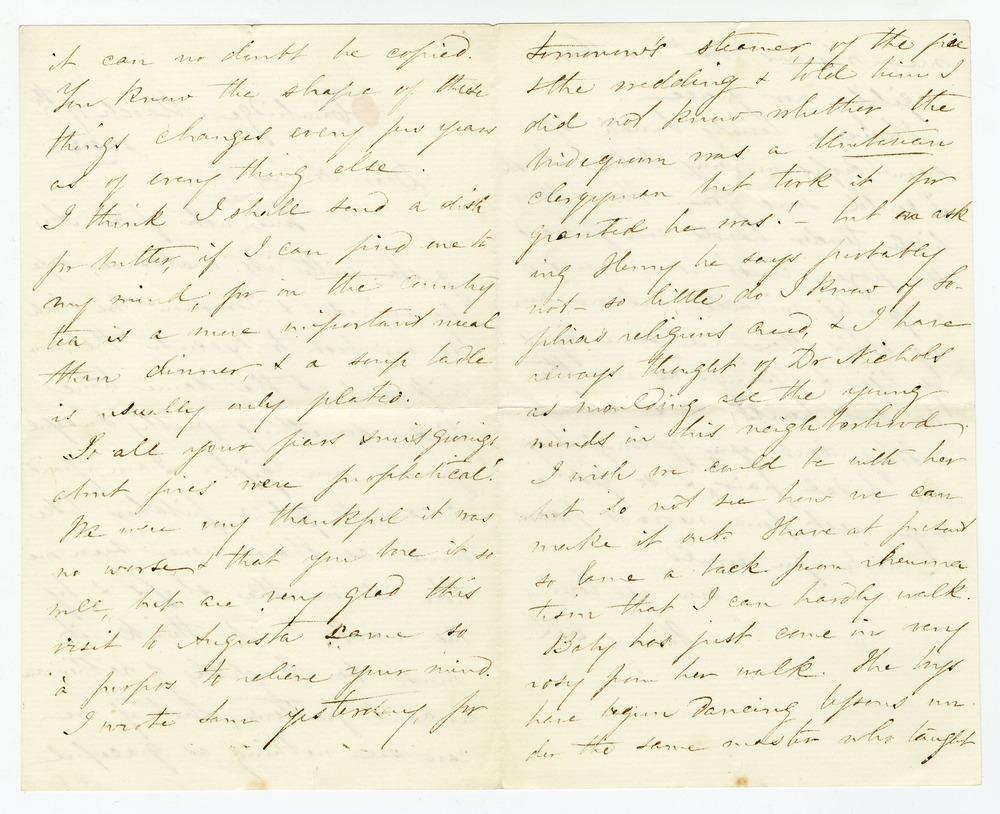 it can no doubt be copied.
You know the shape of these
things changes every few years
as of every thing else.
I think I shall send a dish
for butter, if I can find one to
my mind, for in the country
tea is a more important meal
than dinner, & a soup ladle
is usually only plated.
So all your fears & misgivings
about fires were prophetical!
We were very thankful it was
no worse & that you bore it so
well, but are very glad this
visit to Augusta came so
à propos to relieve your mind.
I wrote Sam yesterday, for
tomorrow's steamer of the fire
& the wedding & told him I
did not know whether the
bridegroom was a Unitarian
clergyman but took it for
granted he was! – but on ask
ing Henry he says probably
not – so little do I know of So-
phia's religious creed, & I have
always thought of Dr Nichols
as moulding all the young
minds in his neighborhood.
I wish we could be with her
but do not see how we can
make it out. I have at present
so lame a back from rheuma
tism that I can hardly walk.
Baby has just come in very
rosy from her walk. The boys
have begun dancing lessons un-
der the same master who taught